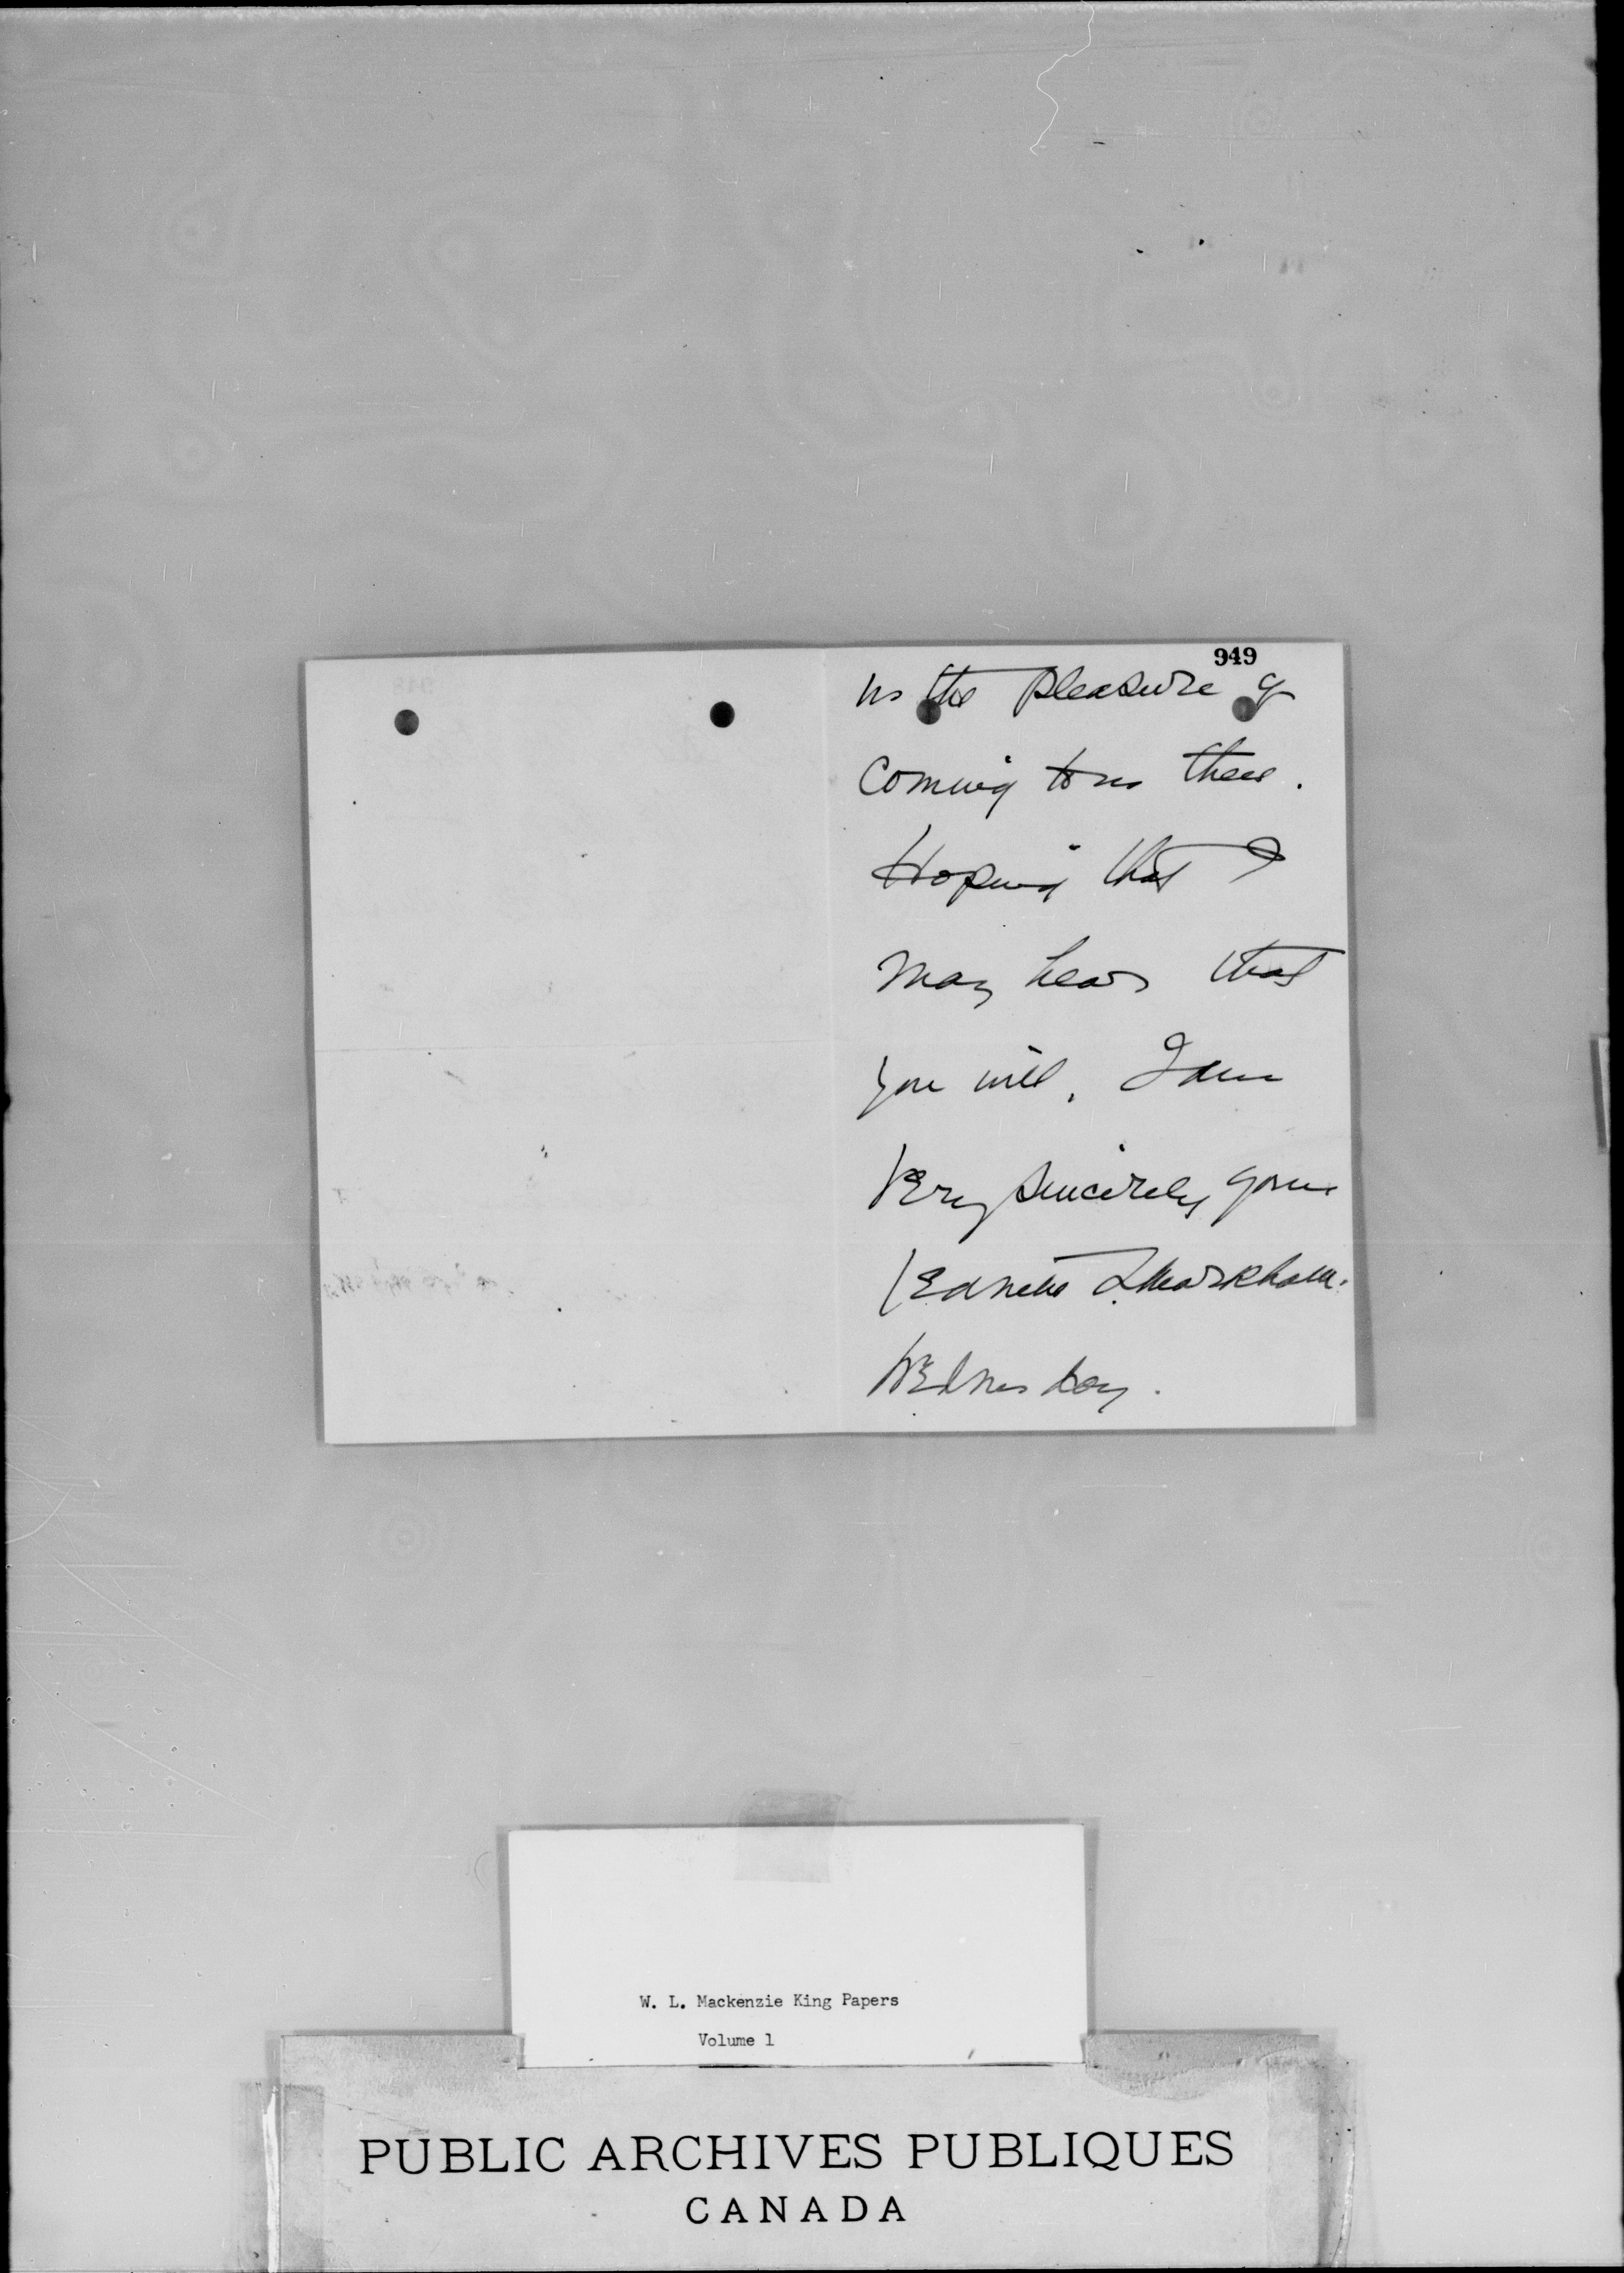 949
us the pleasure of
coming to us then.
Hoping that I
may hear that
you will, I am
Very sincerely yours
Markham.
Wednesday.
W. L. Mackenzie King Papers
Volume 1
PUBLIC ARCHIVES PUBLIQUES
CANADA